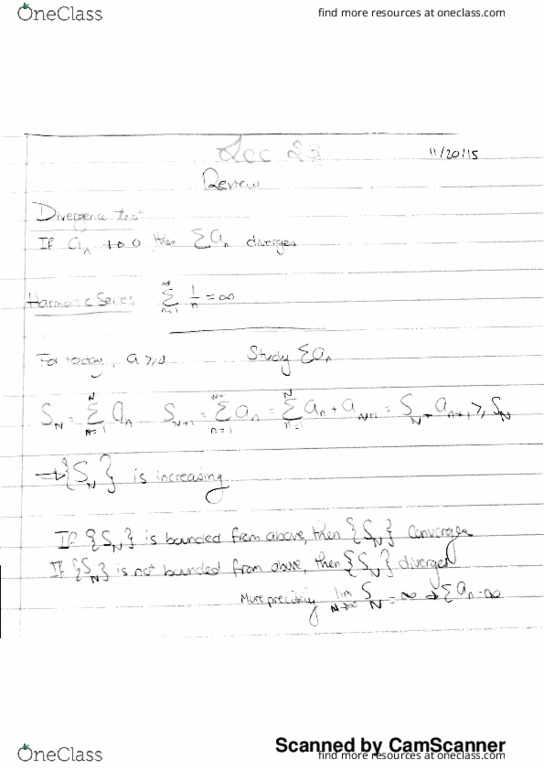 OneClass
find more resources at oneclass.com
Lec 23
11/20/15
Review
Divergence test
If aₙ ↛ 0 then Σaₙ diverges
Harmonic Series Σ_{n=1}^{∞} 1/n = ∞
For today, a ≥ 0 Study Σaₙ
S_N = Σ_{n=1}^{N} aₙ S_{N+1} = Σ_{n=1}^{N+1} aₙ = Σ_{n=1}^{N} aₙ + a_{N+1} = S_N + a_{n+1} ≥ S_N
→ {S_N} is increasing
If {S_N} is bounded from above, then {S_N} converges
If {S_N} is not bounded from above, then {S_N} diverges
More precisely lim_{N→∞} S_N = ∞ → Σaₙ = ∞
Scanned by CamScanner
OneClass
find more resources at oneclass.com